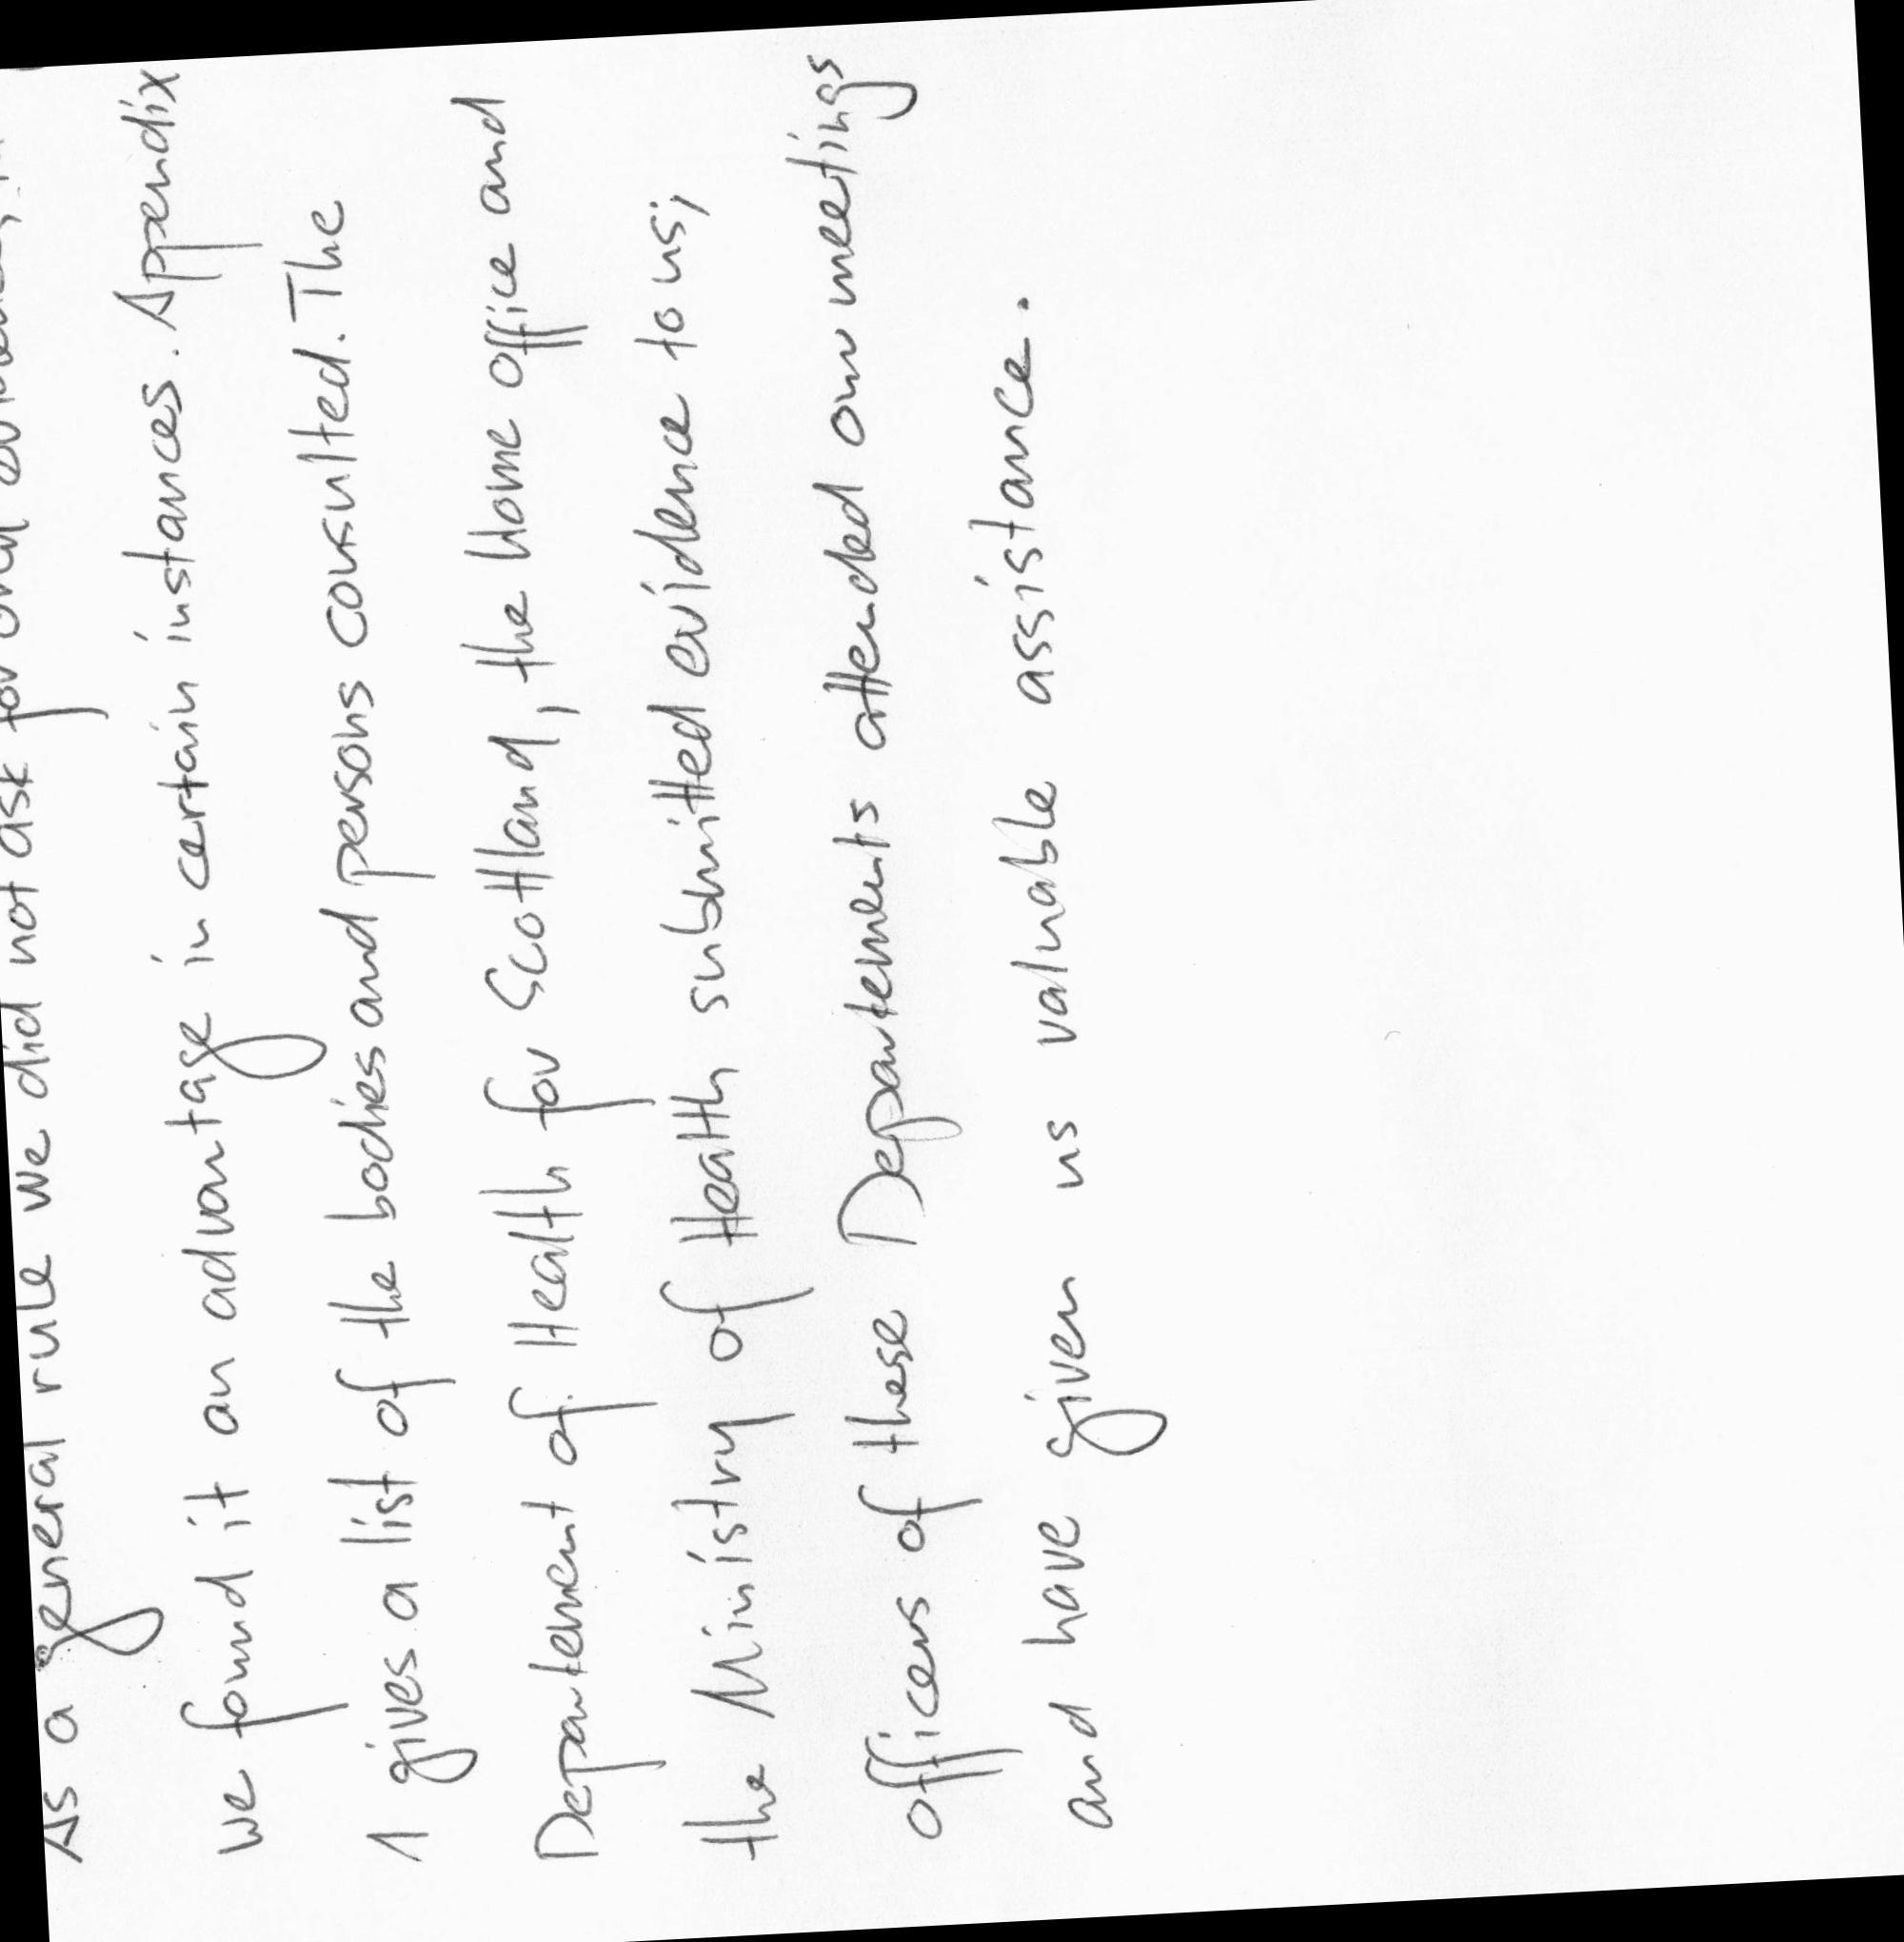 As a general rule we did not ask for oral evidence,
we found it an advantage in certain instances. Appendix
1 gives a list of the bodies and persons consulted. The
Departement of Health for Scottland, the Home Office and
the Ministry of Health submitted evidence to us;
officers of these Departements attended our meetings
and have given us valuable assistance.